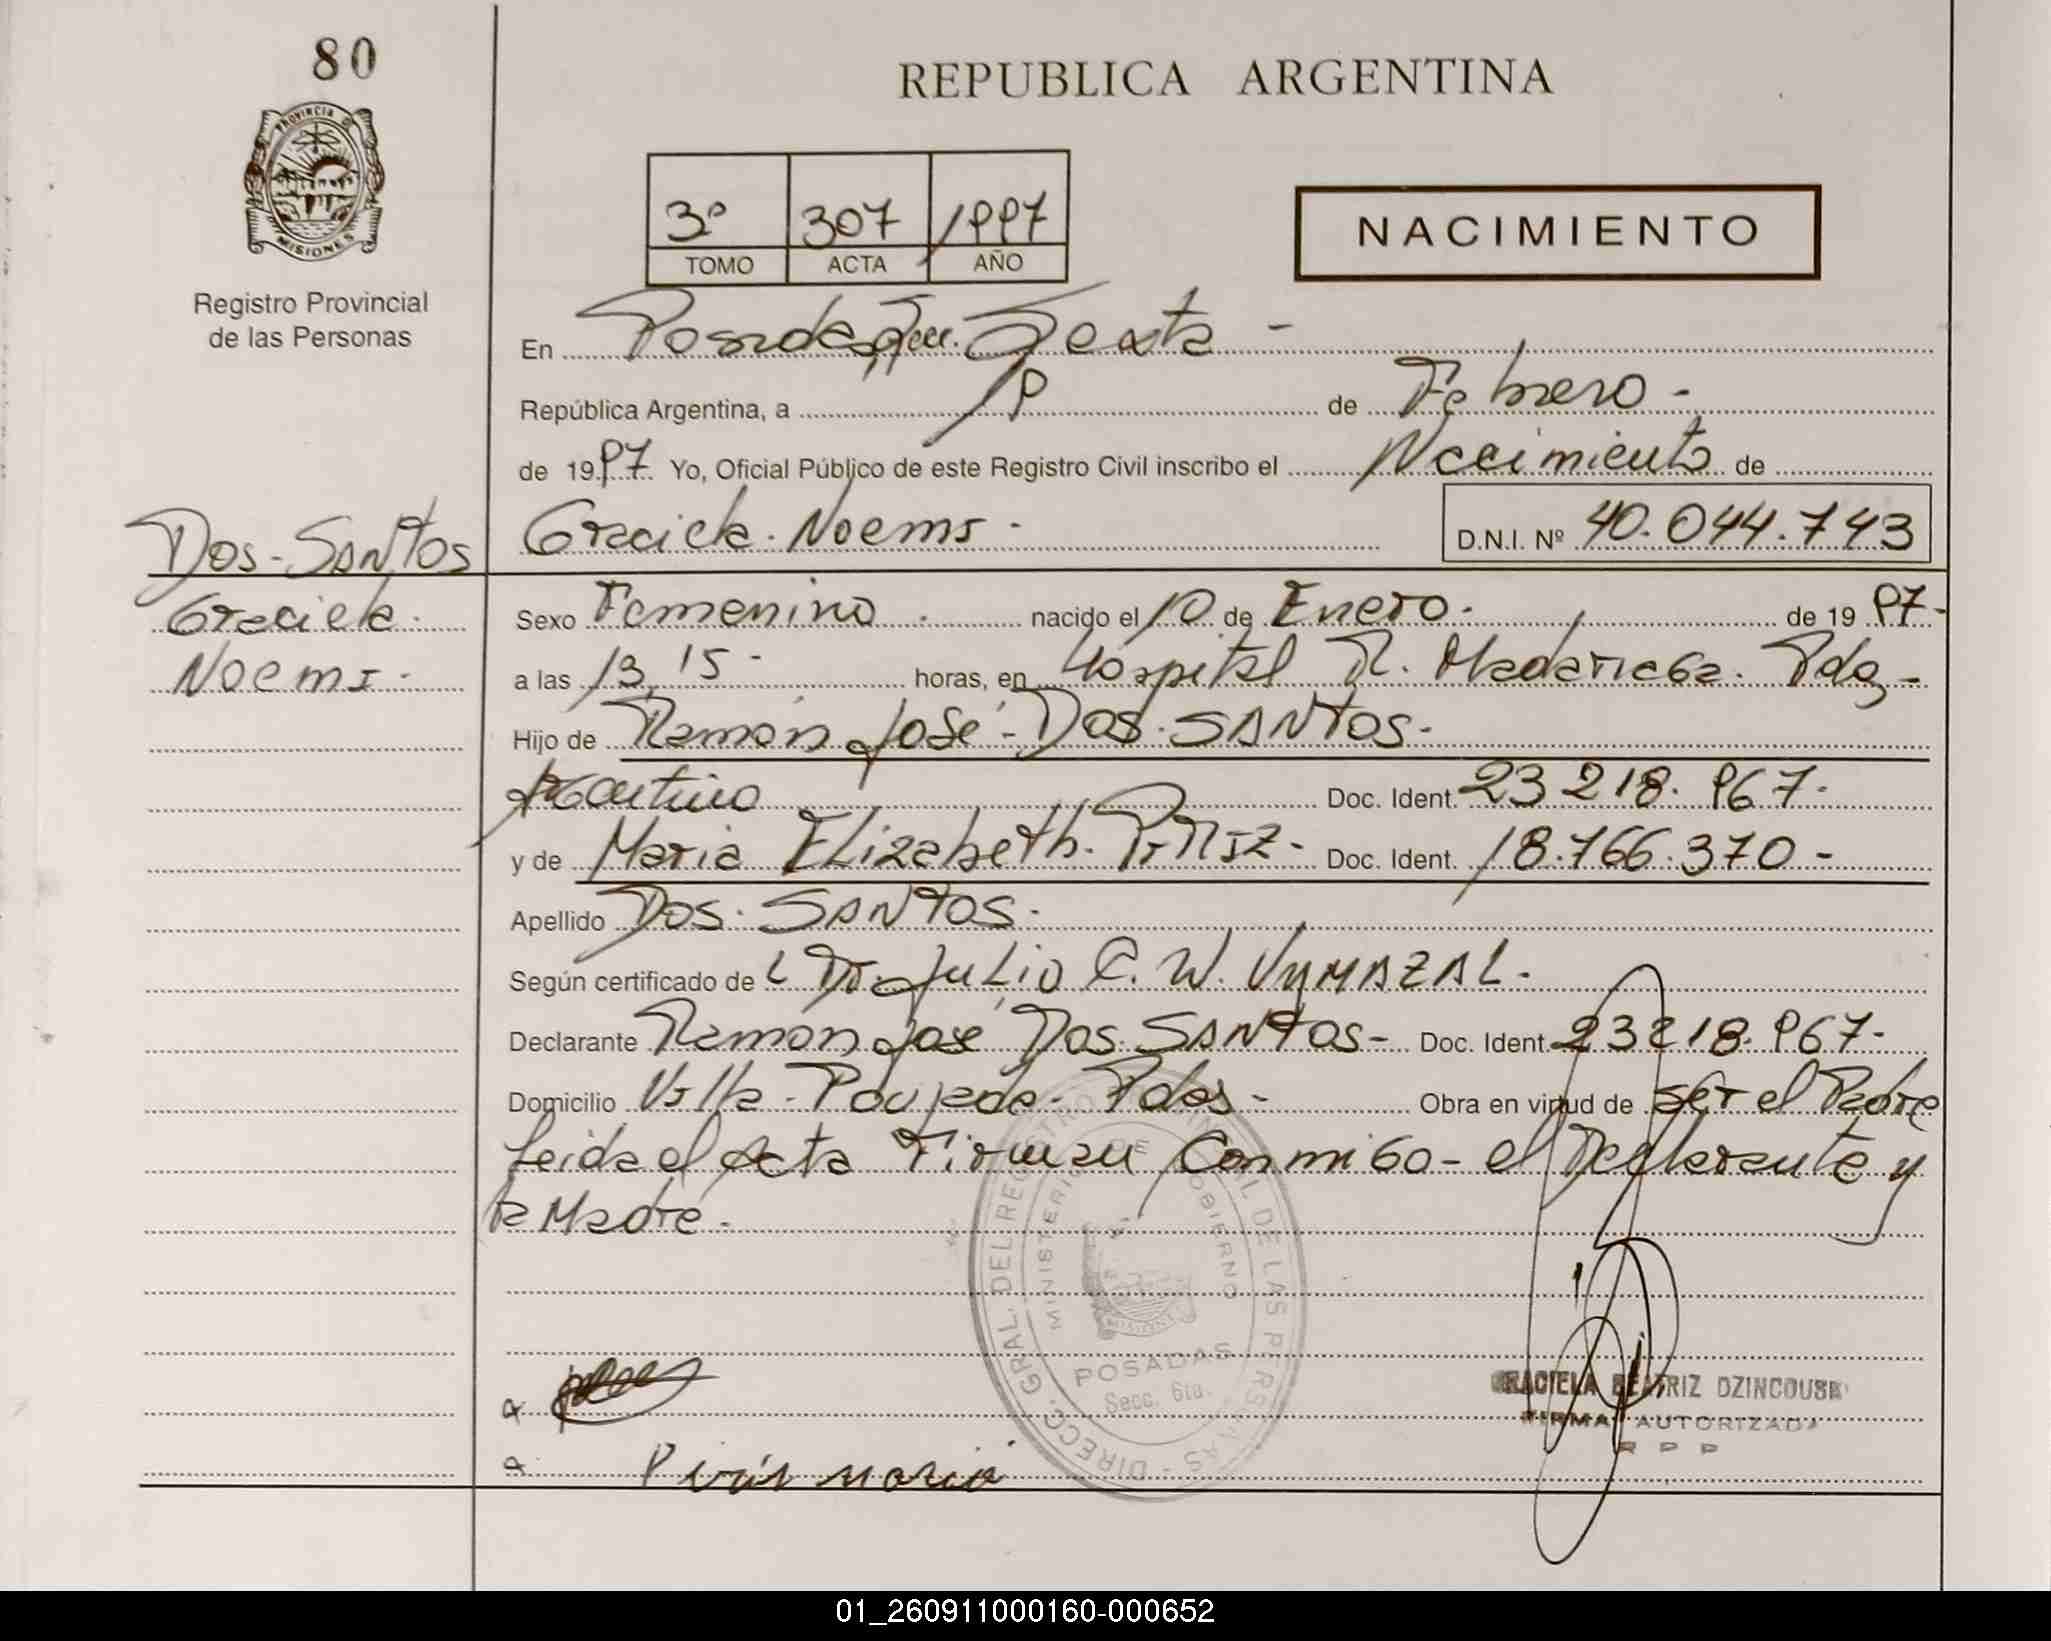 80
REPUBLICA ARGENTINA
PROVINCIA D
MISIONES
Registro Provincial
de las Personas
3º 307 1997
TOMO ACTA AÑO
NACIMIENTO
En Posadas, Sexta -
República Argentina, a 19 de Febrero -
de 1997 Yo, Oficial Público de este Registro Civil inscribo el Nacimiento de
Dos-SANTOS Graciela Noemi - D.N.I. Nº 40.044.743
Graciela Sexo Femenino nacido el 10 de Enero. de 1997-
Noemi a las 13,15 - horas, en Hospital R. Madariaga. Pdas -
Hijo de Ramón José - DOS SANTOS.
Argentino Doc. Ident. 23 218. 967.
y de Maria Elizabeth PIRIZ - Doc. Ident. 18.766.370 -
Apellido DOS SANTOS.
Según certificado de L Dr Julio C. W. VYMAZAL.
Declarante Ramón José Dos SANTOS - Doc. Ident. 23 218. 967.
Domicilio Villa Poujade. Pdas - Obra en virtud de ser el Padre
Leida el Acta Firman Conmigo - el Declarante y
la Madre.
DIRECC. GRAL. DEL REGISTRO PROVINCIAL DE LAS PERSONAS
MINISTERIO DE GOBIERNO
MISIONES
POSADAS
Secc. 6ta.
GRACIELA BEATRIZ DZINCOUSK
FIRMA AUTORIZADA
R P P
Piris Maria
01_260911000160-000652